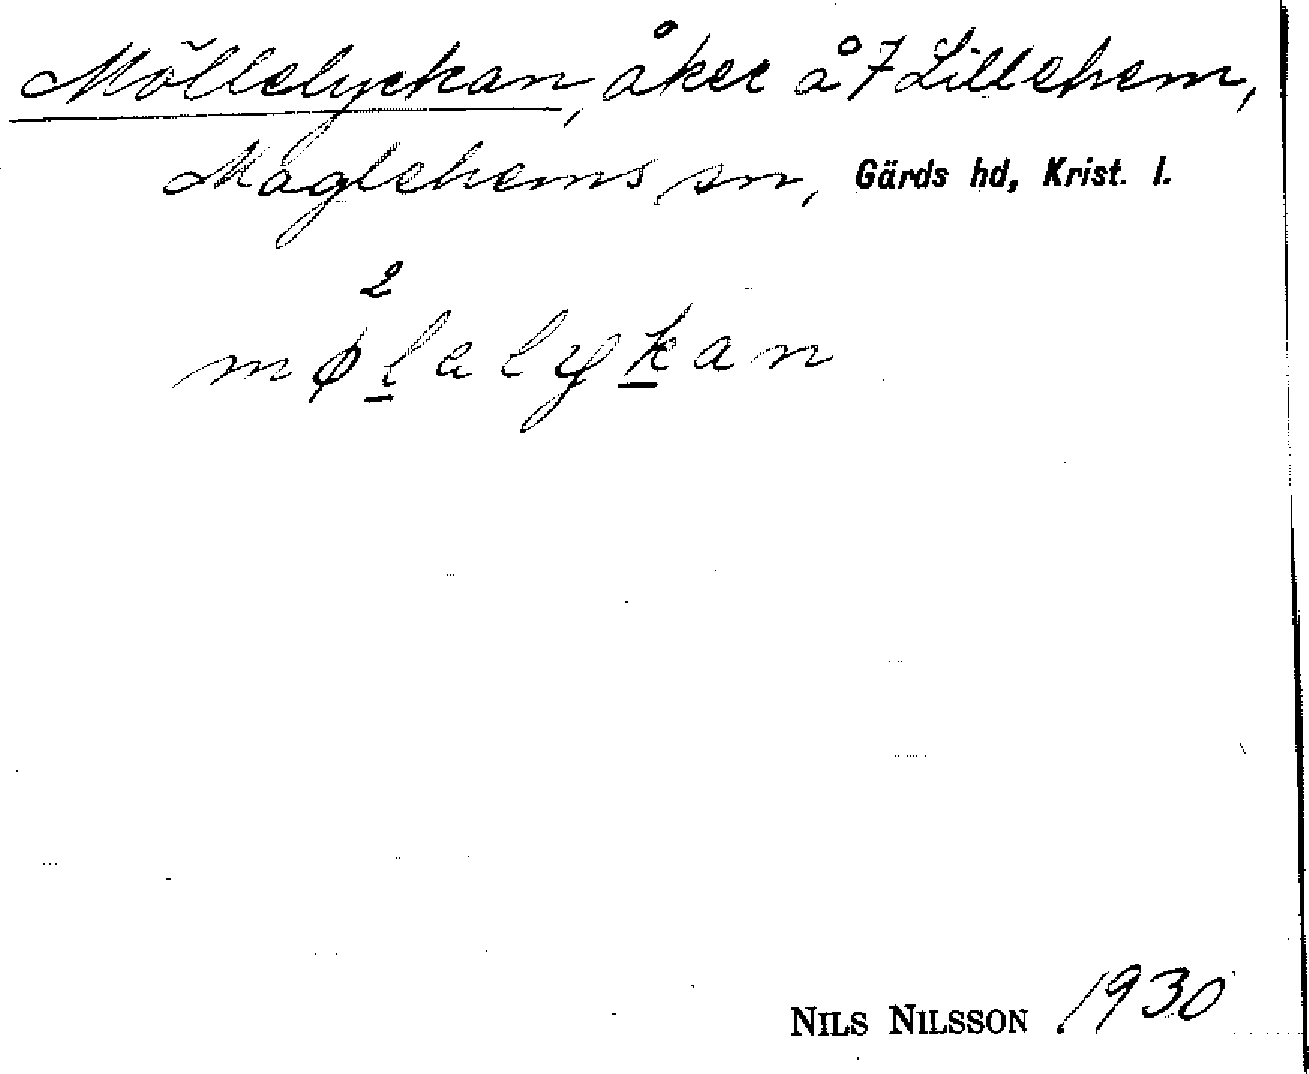 Möllelyckan, åker å 7 Lillehem,
Maglehems sn, Gärds hd, Krist. l.
2
mølalykan
NILS NILSSON 1930